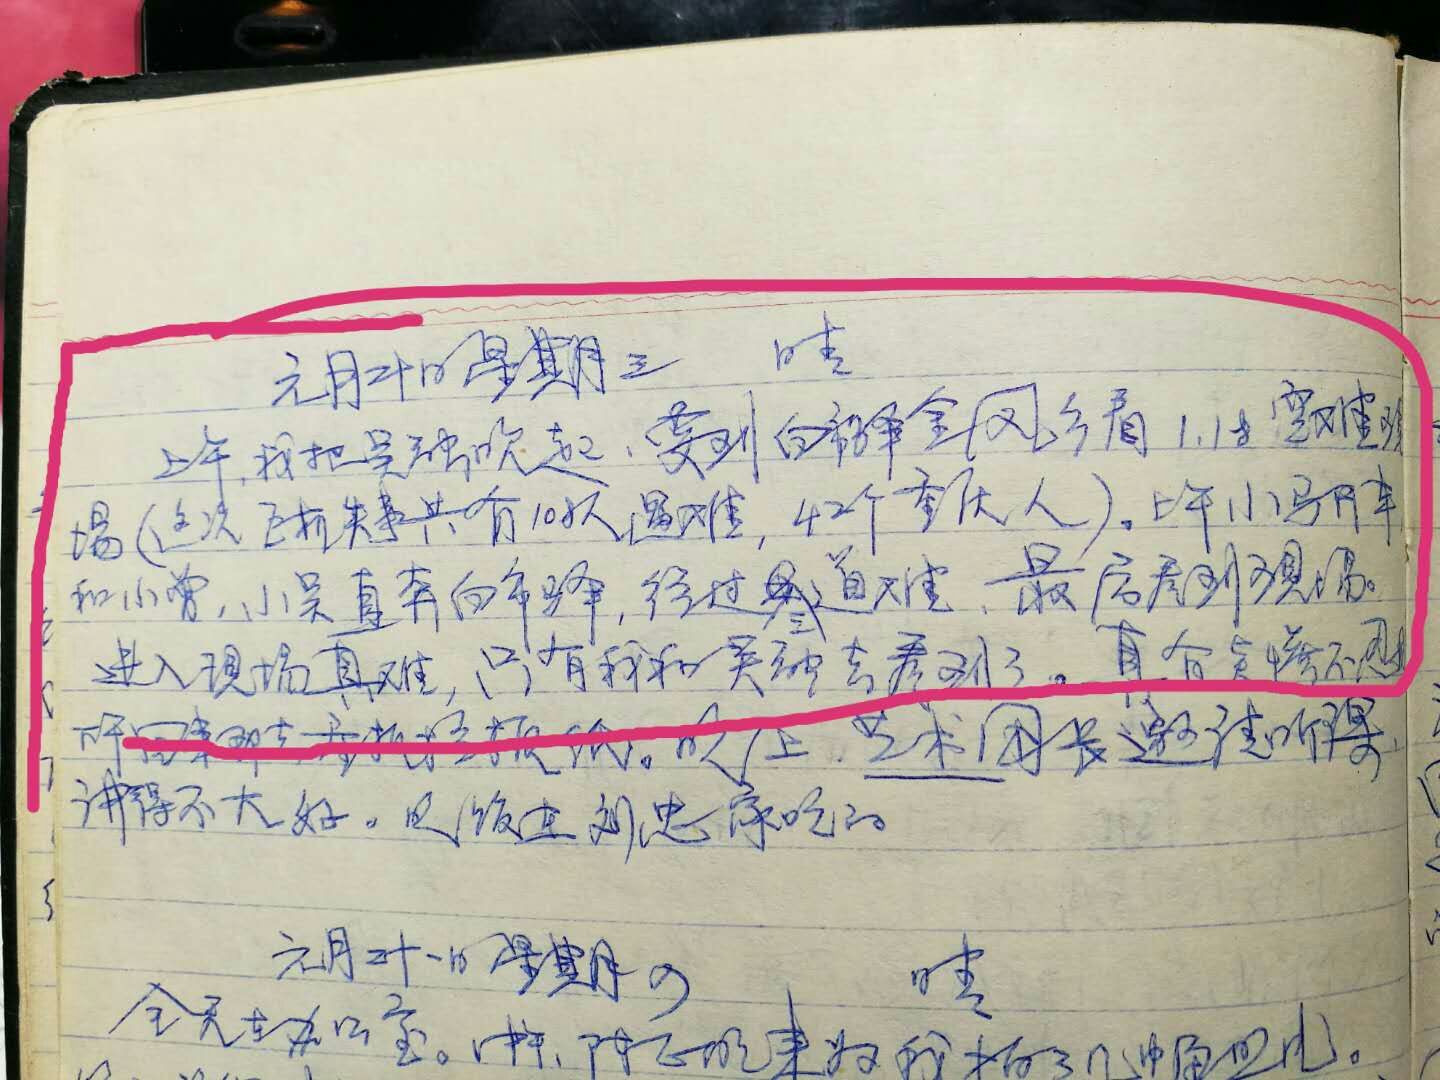 元月二十日 星期三 晴
上午，我把吴融吹起，要到白市驿金凤乡看1.18空难现
场（这次飞机失事共有108人遇难，42个重庆人）。上午小冯开车
和小曾、小吴直奔白市驿，经过叁道难，最后看到现场。
进入现场真难，只有我和吴融去看到了。真有点惨不忍
下午回来。晚上，艺术团长邀请听课，
讲得不大好。晚饭在刘忠家吃的。
元月二十一日 星期四 晴
全天在办公室。中午，陈正明来为我拍了几张照片。